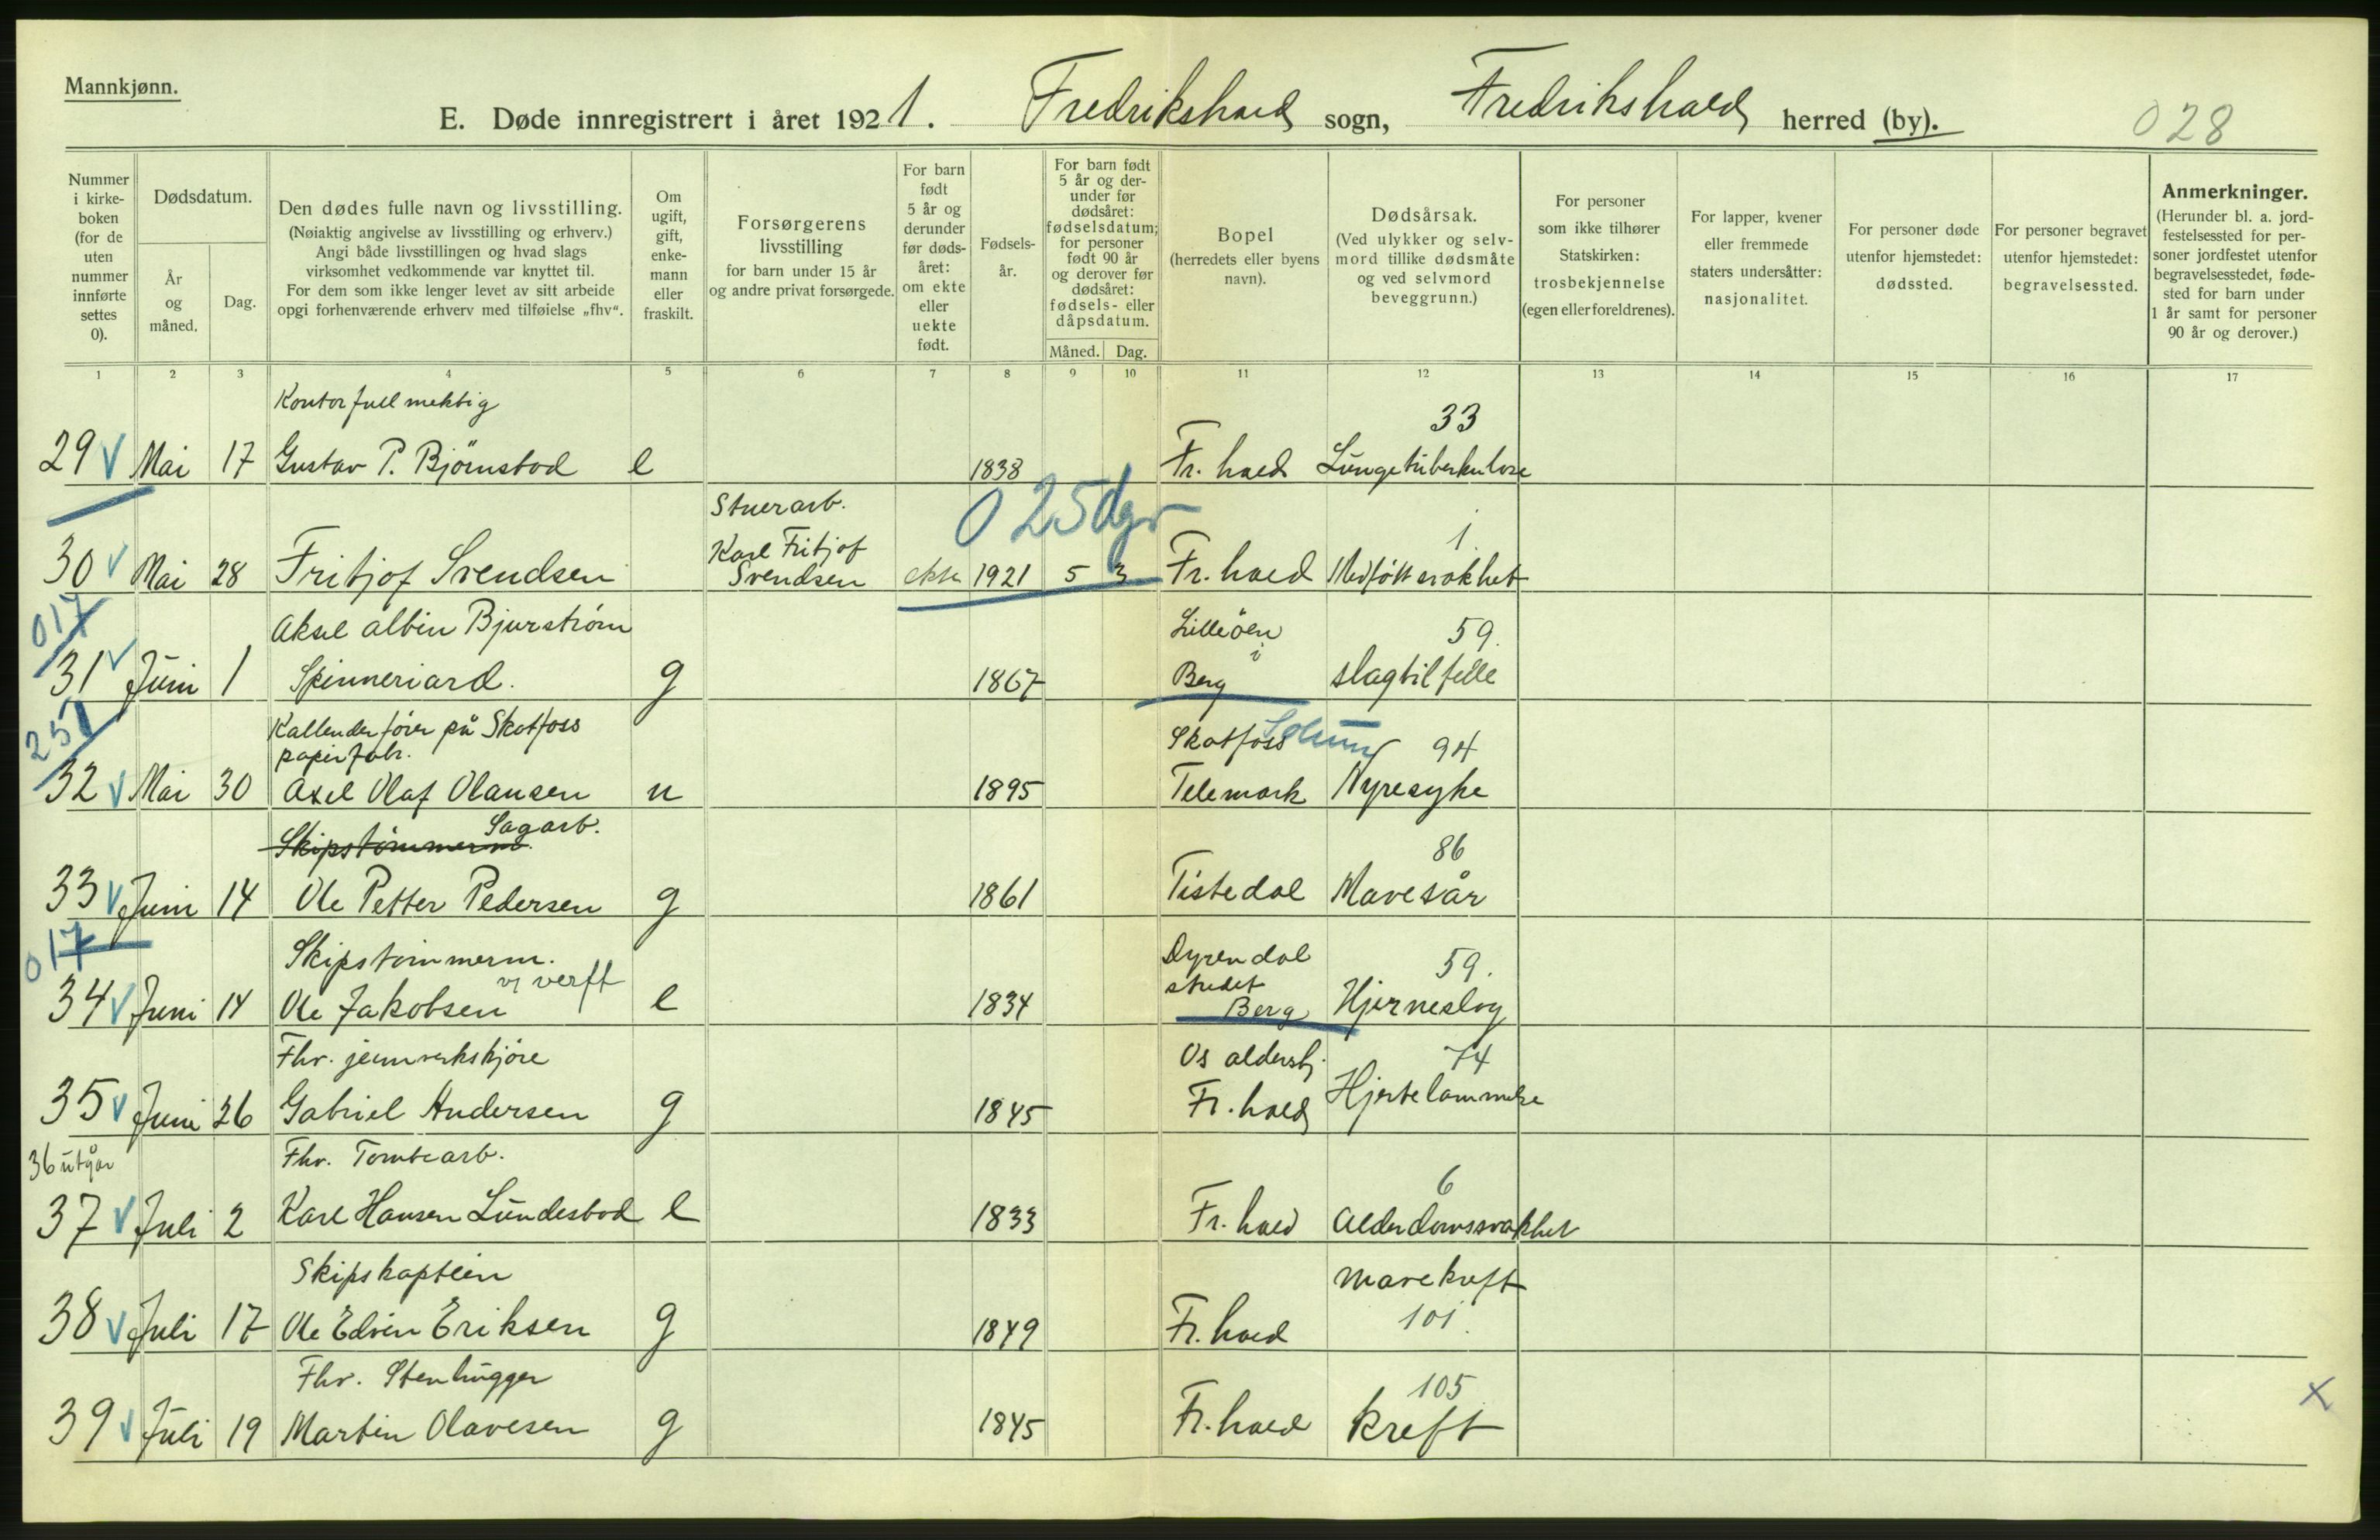 Mannkjønn.
E. Døde innregistrert i året 1921. Fredrikshald sogn, Fredrikshald herred (by). 028
Nummer i kirke-boken (for de uten nummer innførte settes 0).
Dødsdatum.
År og måned.
Dag.
Den dødes fulle navn og livsstilling.
(Nøiaktig angivelse av livsstilling og erhverv.)
Angi både livsstillingen og hvad slags
virksomhet vedkommende var knyttet til.
For dem som ikke lenger levet av sitt arbeide
opgi forhenværende erhverv med tilføielse „fhv“.
Om ugift, gift, enke-mann eller fraskilt.
Forsørgerens livsstilling
for barn under 15 år
og andre privat forsørgede.
For barn født 5 år og derunder før døds-året: om ekte eller uekte født.
Fødsels-år.
For barn født 5 år og der-under før dødsåret: fødselsdatum; for personer født 90 år og derover før dødsåret: fødsels- eller dåpsdatum.
Måned. Dag.
Bopel
(herredets eller byens navn).
Dødsårsak.
(Ved ulykker og selv-mord tillike dødsmåte og ved selvmord beveggrunn.)
For personer som ikke tilhører Statskirken: trosbekjennelse (egen eller foreldrenes).
For lapper, kvener eller fremmede staters undersåtter: nasjonalitet.
For personer døde utenfor hjemstedet: dødssted.
For personer begravet utenfor hjemstedet: begravelsessted.
Anmerkninger.
(Herunder bl. a. jord-festelsessted for per-soner jordfestet utenfor begravelsesstedet, føde-sted for barn under 1 år samt for personer 90 år og derover.)
1 2 3 4 5 6 7 8 9 10 11 12 13 14 15 16 17
Kontorfullmektig 33
29 V Mai 17 Gustav P. Bjørnstad e 1838 Fr. hald Lungetuberkulose
Stuerarb. 0 25 dgr
Karl Fritjof 1
30 V Mai 28 Fritjof Svendsen Svendsen ekte 1921 5 3 Fr. hald Medfött svakhet
017 Aksel Albin Bjurstrøm Lilleöen i 59.
31 V Juni 1 Spinneriarb. g 1867 Berg slagtilfelle
251 Kallenderfører på Skotfoss Skotfoss Solum 94
papirfabr.
32 V Mai 30 Axel Olaf Olausen u 1895 Telemark Nyresyke
Skipstømmerm. Sagarb. 86
33 V Juni 14 Ole Petter Pedersen g 1861 Tistedal Mavesår
017 Skipstømmerm. Dyrendal 59.
v/ verft stredet
34 V Juni 14 Ole Jakobsen e 1834 Berg Hjerneslag
Fhv. Os aldershj. 74
35 V Juni 26 Gabriel Andersen g 1845 Fr. hald Hjertelammelse
36 utgår Fhv. Tomtearb. 6
37 V Juli 2 Karl Hansen Lundestad e 1833 Fr. hald Alderdomssvakhet
Skipskaptein Mavekreft
38 V Juli 17 Ole Edvin Eriksen g 1849 Fr. hald 101.
Fhv. Stenhugger 105
39 V Juli 19 Martin Olavesen g 1845 Fr. hald Kreft X